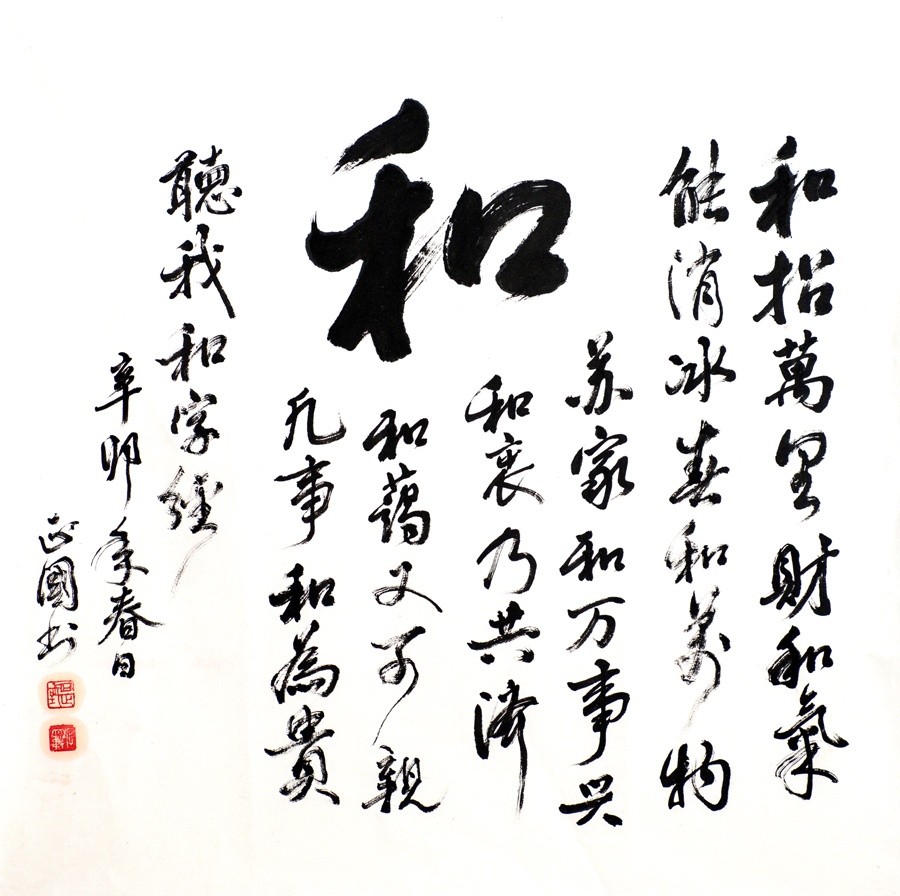 和招萬里財和氣
能消冰春和萬物
和
苏家和万事兴
和衷乃共济
和藹又可親
凡事和為貴
聽我和字經
辛卯年春日
正國书